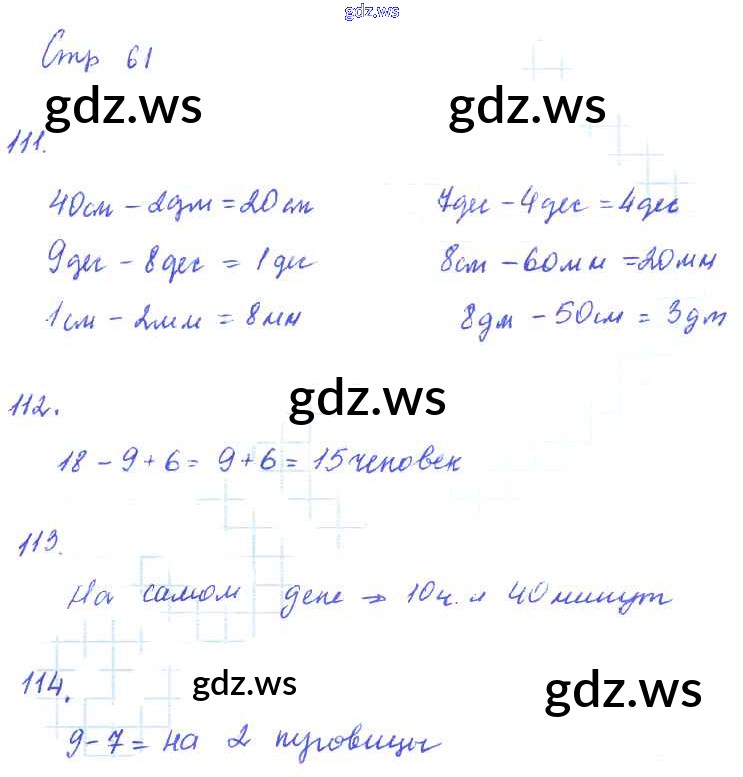 gdz.ws
Стр 61
gdz.ws gdz.ws
111.
40см - 2дм = 20см 7дес - 4дес = 4дес
9дес - 8дес = 1дес 8см - 60мм = 20мм
1см - 2мм = 8мм 8дм - 50см = 3дм
gdz.ws
112.
18 - 9 + 6 = 9 + 6 = 15 человек
113.
На самом деле → 10ч. и 40 минут
114.
gdz.ws gdz.ws
9 - 7 = на 2 пуговицы